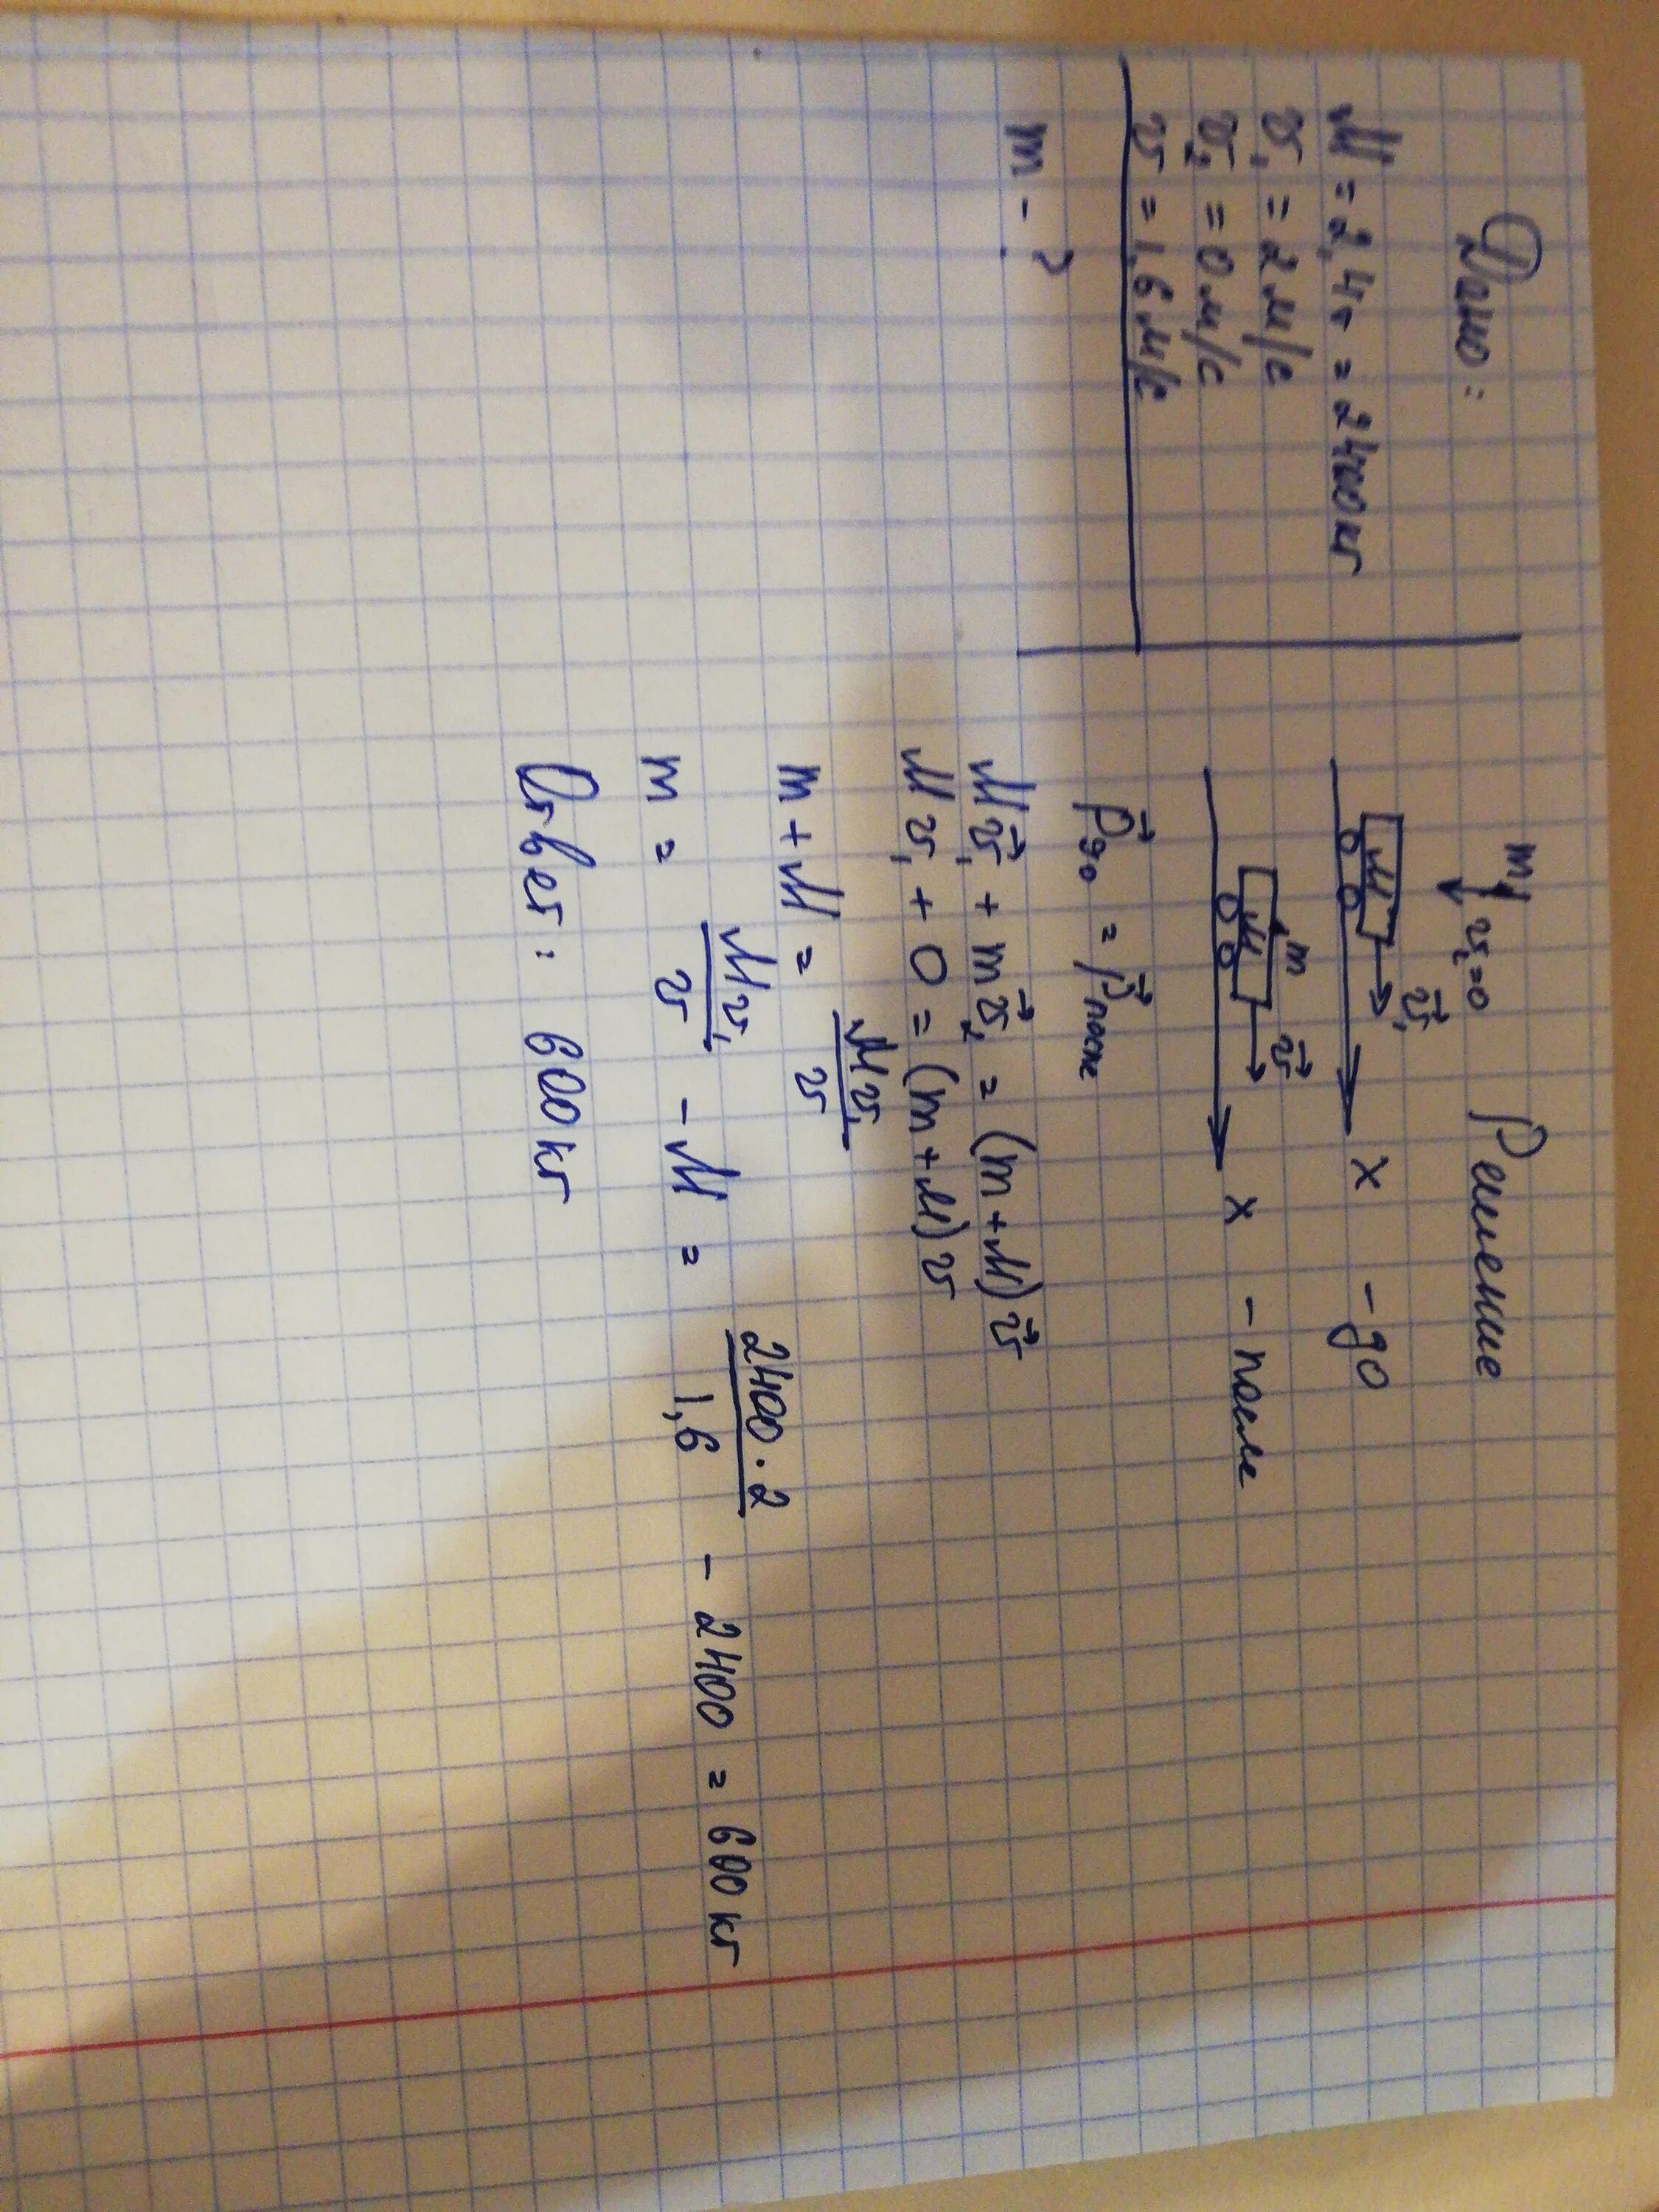 Дано:
M = 2,4т = 2400кг
v₁ = 2 м/с
v₂ = 0 м/с
v = 1,6 м/с
m - ?
Решение
m v₂=0
M v⃗₁ x - до
m
M v⃗ x - после
p⃗до = p⃗после
Mv⃗₁ + mv⃗₂ = (m+M)v⃗
Mv₁ + 0 = (m+M)v
m+M = Mv₁/v
m = Mv₁/v - M = 2400·2/1,6 - 2400 = 600 кг
Ответ: 600 кг